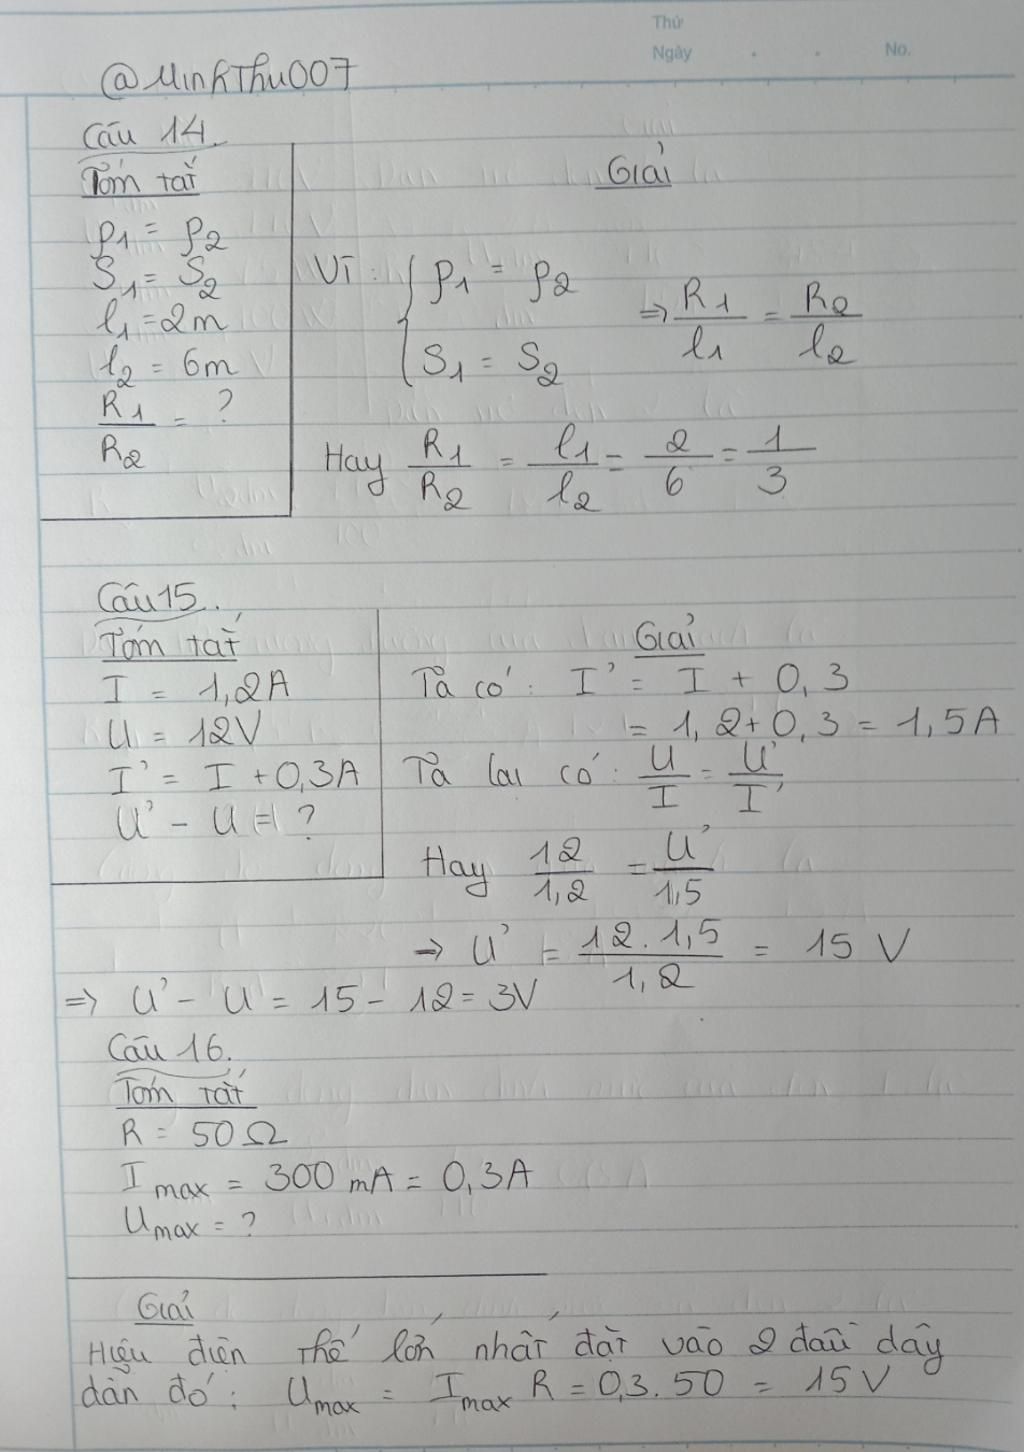 Thứ
Ngày . . No.
@MinhThu007
Câu 14.
Tóm tắt
ρ1 = ρ2
S1 = S2
l1 = 2m
l2 = 6m
R1/R2 = ?
Giải
Vì: { ρ1 = ρ2
S1 = S2
⇒ R1/l1 = R2/l2
Hay R1/R2 = l1/l2 = 2/6 = 1/3
Câu 15.
Tóm tắt
I = 1,2A
U = 12V
I' = I + 0,3A
U' - U = ?
Giải
Ta có: I' = I + 0,3
= 1,2 + 0,3 = 1,5A
Ta lại có: U/I = U'/I'
Hay 12/1,2 = U'/1,5
⇒ U' = 12.1,5/1,2 = 15 V
⇒ U' - U = 15 - 12 = 3V
Câu 16.
Tóm tắt
R = 50Ω
Imax = 300 mA = 0,3A
Umax = ?
Giải
Hiệu điện thế lớn nhất đặt vào 2 đầu dây
dẫn đó: Umax = Imax R = 0,3.50 = 15V